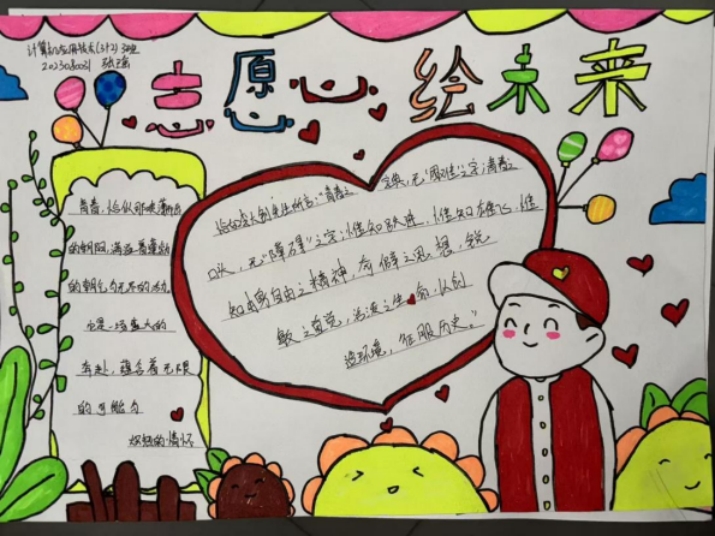 计算机应用技术(3+2)3班
2023080031 张
志愿心 绘未来
青春,恰似那喷薄而出
的朝阳,满溢着蓬勃
的朝气与无尽的活力
它是一场盛大的
奔赴,蕴含着无限
的可能与
炽热的情怀
恰如李大钊先生所言:"青春之
字典,无"困难"之字;青春之
口头,无"障碍"之字;惟知跃进,惟知雄飞,惟
知本身自由之精神,奇僻之思想,锐
敏之直觉,活泼之生命,以创
造环境,征服历史。"